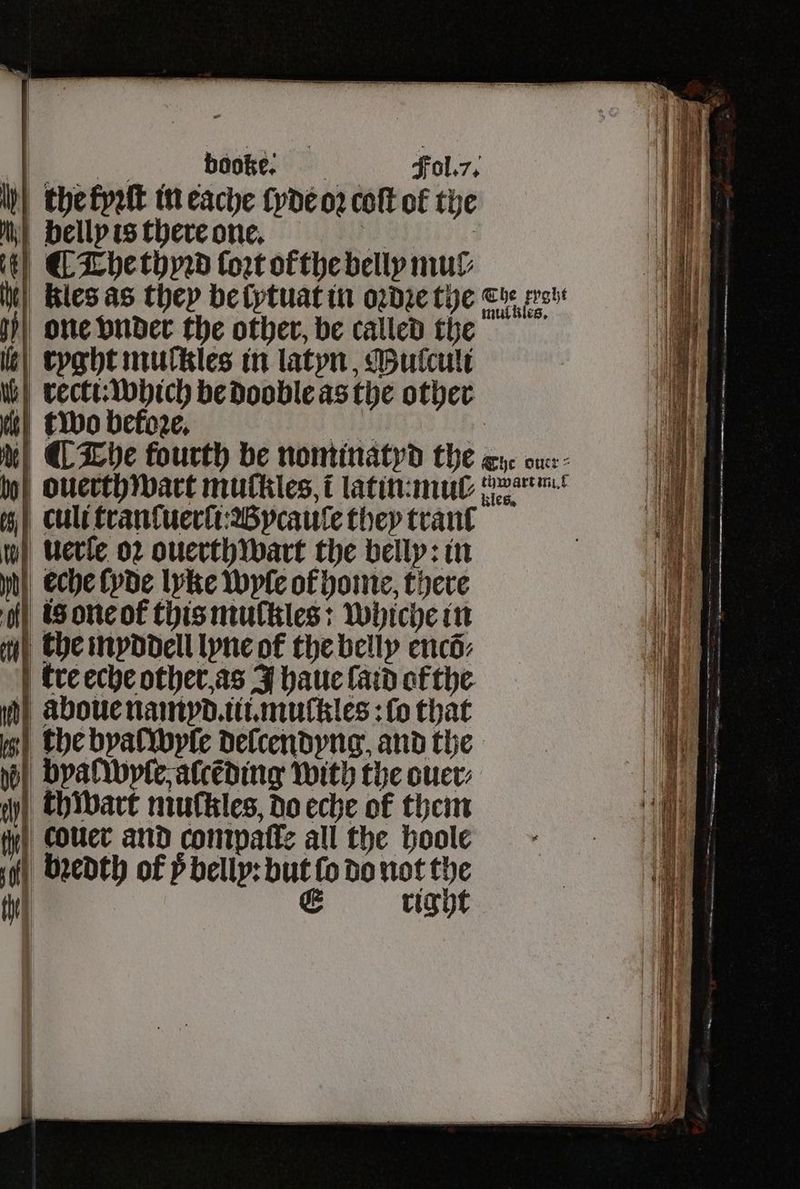 booke. Fol.7.
the fyrſt in eache ſyde or coſt of the
belly is there one.
¶ The thyrd ſort of the belly muſ-
kles as they be ſytuat in ordre the
one vnder the other, be called the
ryght muſkles in latyn, Muſculi
recti: which be dooble as the other
two before.
The ryght
muſkles.
¶ The fourth be nominatyd the
ouerthwart muſkles, ī latin: muſ-
culi tranſuerſi: Bycauſe they tranſ
uerſe or ouerthwart the belly: in
eche ſyde lyke wyſe of home, there
is one of this muſkles: whiche in
the myddell lyne of the belly encō-
tre eche other, as I haue ſaid of the
aboue namyd.iii.muſkles: ſo that
the byaſwyſe deſcendyng, and the
byaſwyſe, aſcēding with the ouer-
thwart muſkles, do eche of them
couer and compaſſe all the hoole
bredth of þͤ belly: but ſo do not the
The ouer-
thwart muſ
kles.
E right